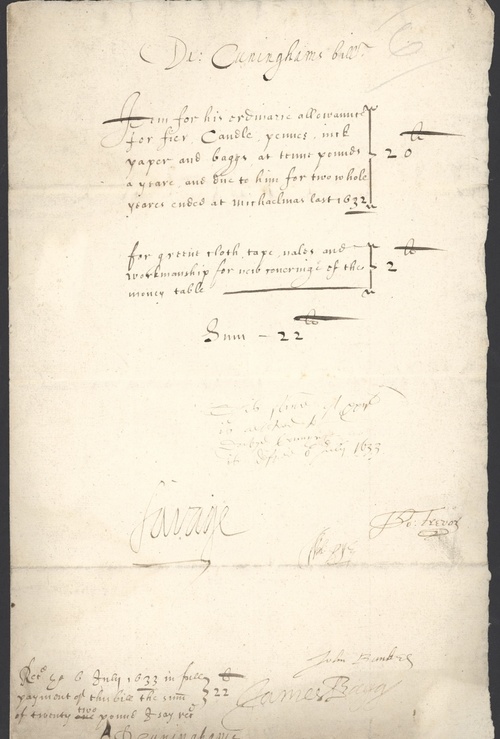 Da: Cuninghams bill
Item for his ordinarie allowannce
for fier, Candle, pennes, inck
paper and baggs at tenne pounds
a yeare, and due to him for two whole
yeares ended at Michaelmas last 1632
li
20
for greene cloth, tape, nales and
workmanship for new coveringe of the
money table
li
2
Sum — 22 li
July 1633
Savage
Tho: Trevor
John Bankes
Rec 6 July 1633 in full
payment of this bill the sum
of twenty two pound I say rec
li
22
James
Cuninghame